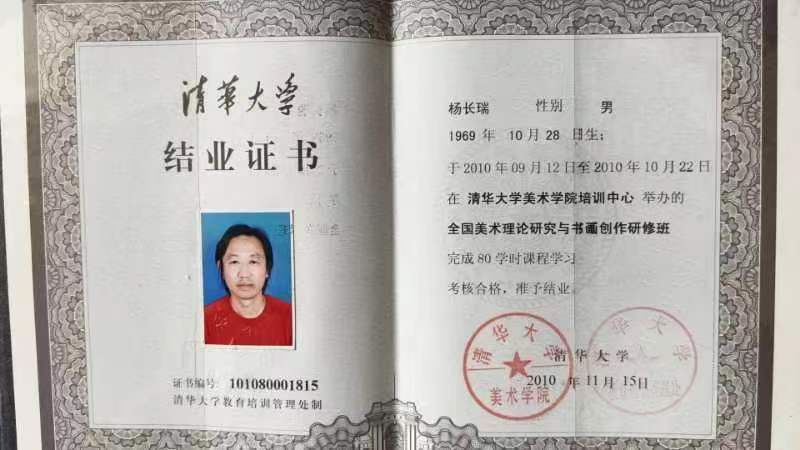 清华大学
结业证书
证书编号：101080001815
清华大学教育培训管理处制
杨长瑞 性别 男
1969 年 10 月 28 日生；
于 2010 年 09 月 12 日至 2010 年 10 月 22 日
在 清华大学美术学院培训中心 举办的
全国美术理论研究与书画创作研修班
完成 80 学时课程学习
考核合格，准予结业。
清华大学
2010 年 11 月 15 日
清华大学
美术学院